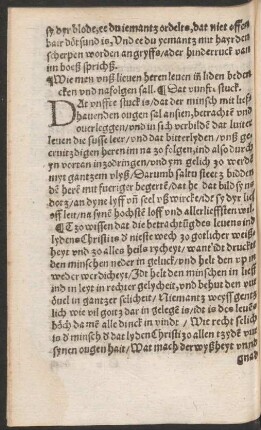 sy dyr blode, ee du iemantz ordelts, dat niet offen
bair dörsund is, Und ee du yemantz mit hayrden
scherpen worden angryffs, ader hinderruck van
im boeß sprichß.
¶ Wie men unß lieven heren leven in liden beden
cken und nafolgen sall. ¶ Dat vunfft stuck.
DAt vnffte stuck is, dat der minsch mit lieff
havenden ougen sal ansien, betrachtē und
overleggen, und in sich verbildē dat luiter
leven die susse leer, und dat bitterlyden, unß ge
cruitzdigen heren im na zo folgen, ind also durch
yn vortan in zodringen, und ym gelich zo werdē
myt gantzem vlyß, Darumb saltu steetz in bidden
dē herē mit fueriger begertē, dat he dat bild sy no
dorz, an dyne lyff on seel vßwircke, idt sy dyr lieff
off leit, na synē hochstē loff und allerliefften wil.
¶ Tzo wissen dat die betrachtung des levens ind
lydens Christi in d nieste wech zo gotlicher weiß
heyt und zo alles heils rycheyt, want idt druckt
den minschen neder in geluck, und helt den up in
weder werdicheyt, Idt helt den minschen in lieff
ind in leyt in rechter gelycheit, und behut den vur
övel in gantzer selicheit, Niemantz weyß gentz
lich wie vil gotz dar in gelegē is, idt is des levēs
böch da mē alle dinck in vindt, Wie recht selich
is d minsch d dat lyden Christi zo allen tzydē vur
synen ougen hait, Wat mach der wyßheyt und
gnad